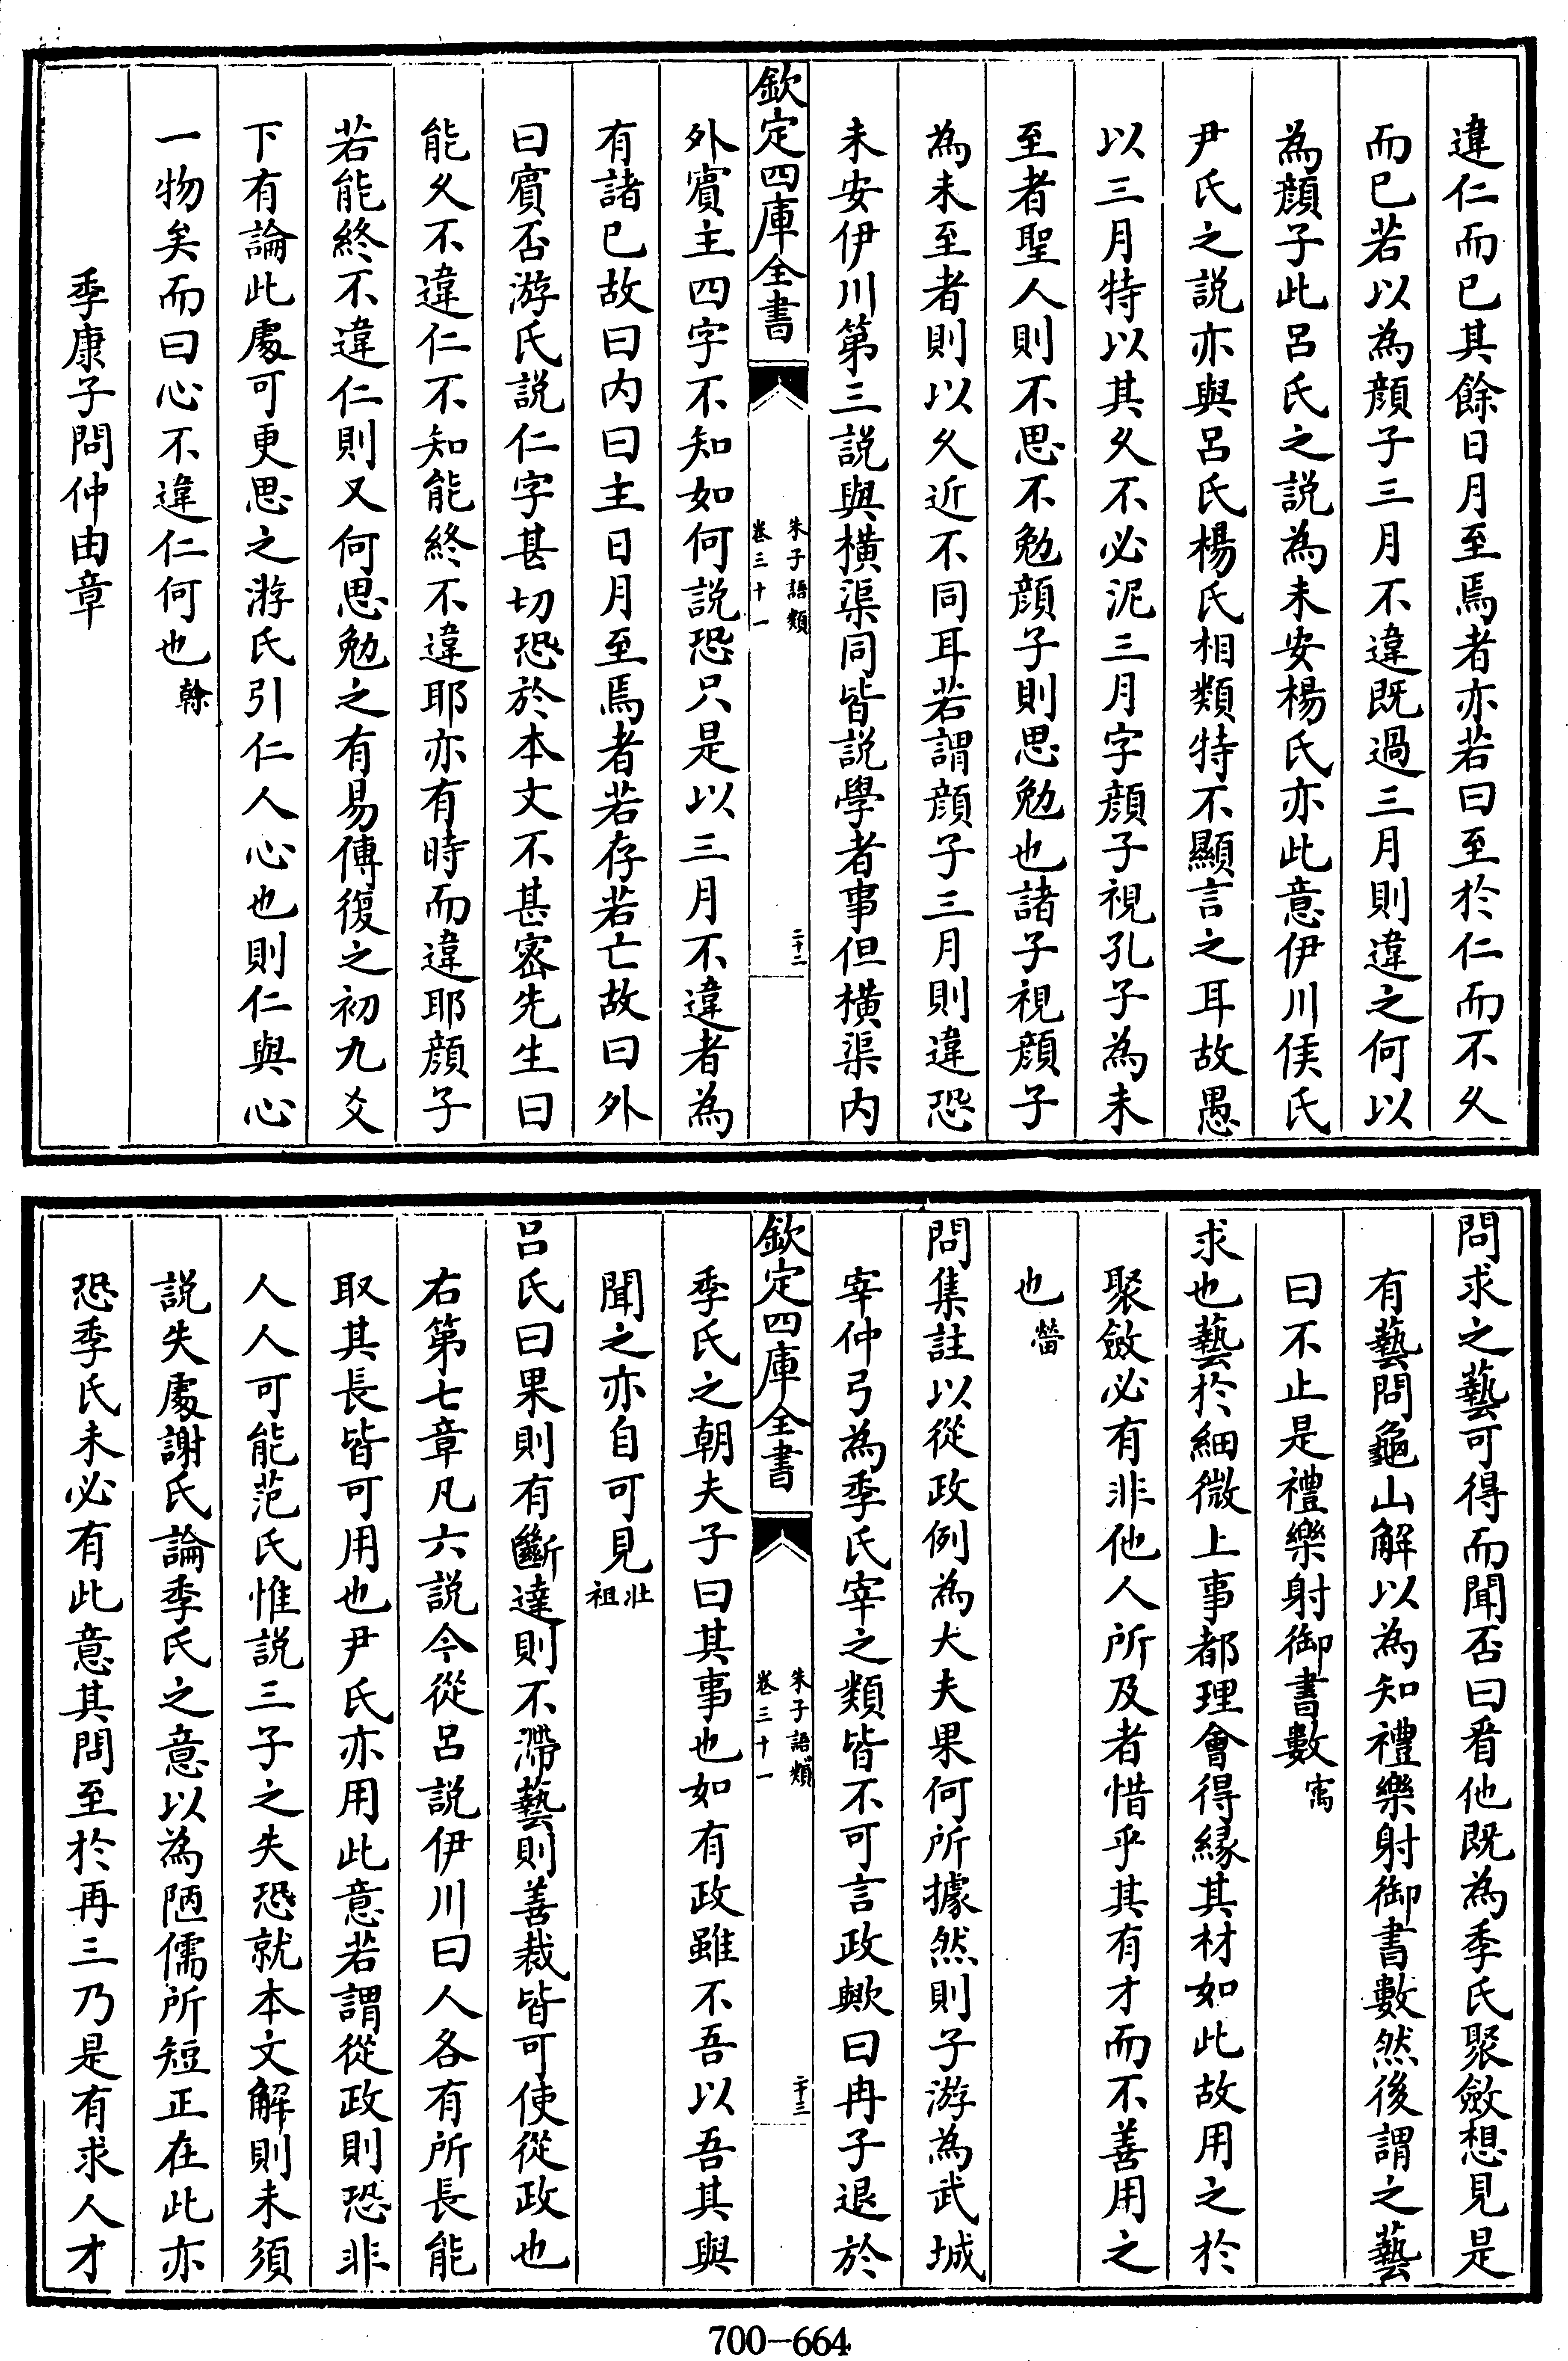 違仁而已其餘日月至焉者亦若曰至於仁而不久
而已若以為顔子三月不違既過三月則違之何以
為顔子此呂氏之説為未安楊氏亦此意伊川侯氏
尹氏之説亦與呂氏楊氏相類特不顯言之耳故愚
以三月特以其久不必泥三月字顔子視孔子為未
至者聖人則不思不勉顔子則思勉也諸子視顔子
為未至者則以久近不同耳若謂顔子三月則違恐
未安伊川第三説與橫渠同皆説學者事但橫渠内
欽定四庫全書
朱子語類
卷三十一
二十二
外賓主四字不知如何説恐只是以三月不違者為
有諸已故曰内曰主日月至焉者若存若亡故曰外
曰賓否游氏説仁字甚切恐於本文不甚密先生曰
能久不違仁不知能終不違耶亦有時而違耶顔子
若能終不違仁則又何思勉之有易傳復之初九爻
下有論此處可更思之游氏引仁人心也則仁與心
一物矣而曰心不違仁何也榦
季康子問仲由章
問求之藝可得而聞否曰看他既為季氏聚斂想見是
有藝問龜山解以為知禮樂射御書數然後謂之藝
曰不止是禮樂射御書數㝢
求也藝於細微上事都理會得緣其材如此故用之於
聚斂必有非他人所及者惜乎其有才而不善用之
也㽦
問集註以從政例為大夫果何所據然則子游為武城
宰仲弓為季氏宰之類皆不可言政歟曰冉子退於
欽定四庫全書
朱子語類
卷三十一
二十三
季氏之朝夫子曰其事也如有政雖不吾以吾其與
聞之亦自可見壯祖
呂氏曰果則有斷達則不滯藝則善裁皆可使從政也
右第七章凡六説今從呂説伊川曰人各有所長能
取其長皆可用也尹氏亦用此意若謂從政則恐非
人人可能范氏惟説三子之失恐就本文解則未須
説失處謝氏論季氏之意以為陋儒所短正在此亦
恐季氏未必有此意其問至於再三乃是有求人才
700-664